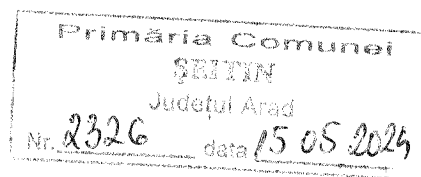 Primăria Comunei
ŞEITIN
Județul Arad
Nr. 2326 data 15 05 2024